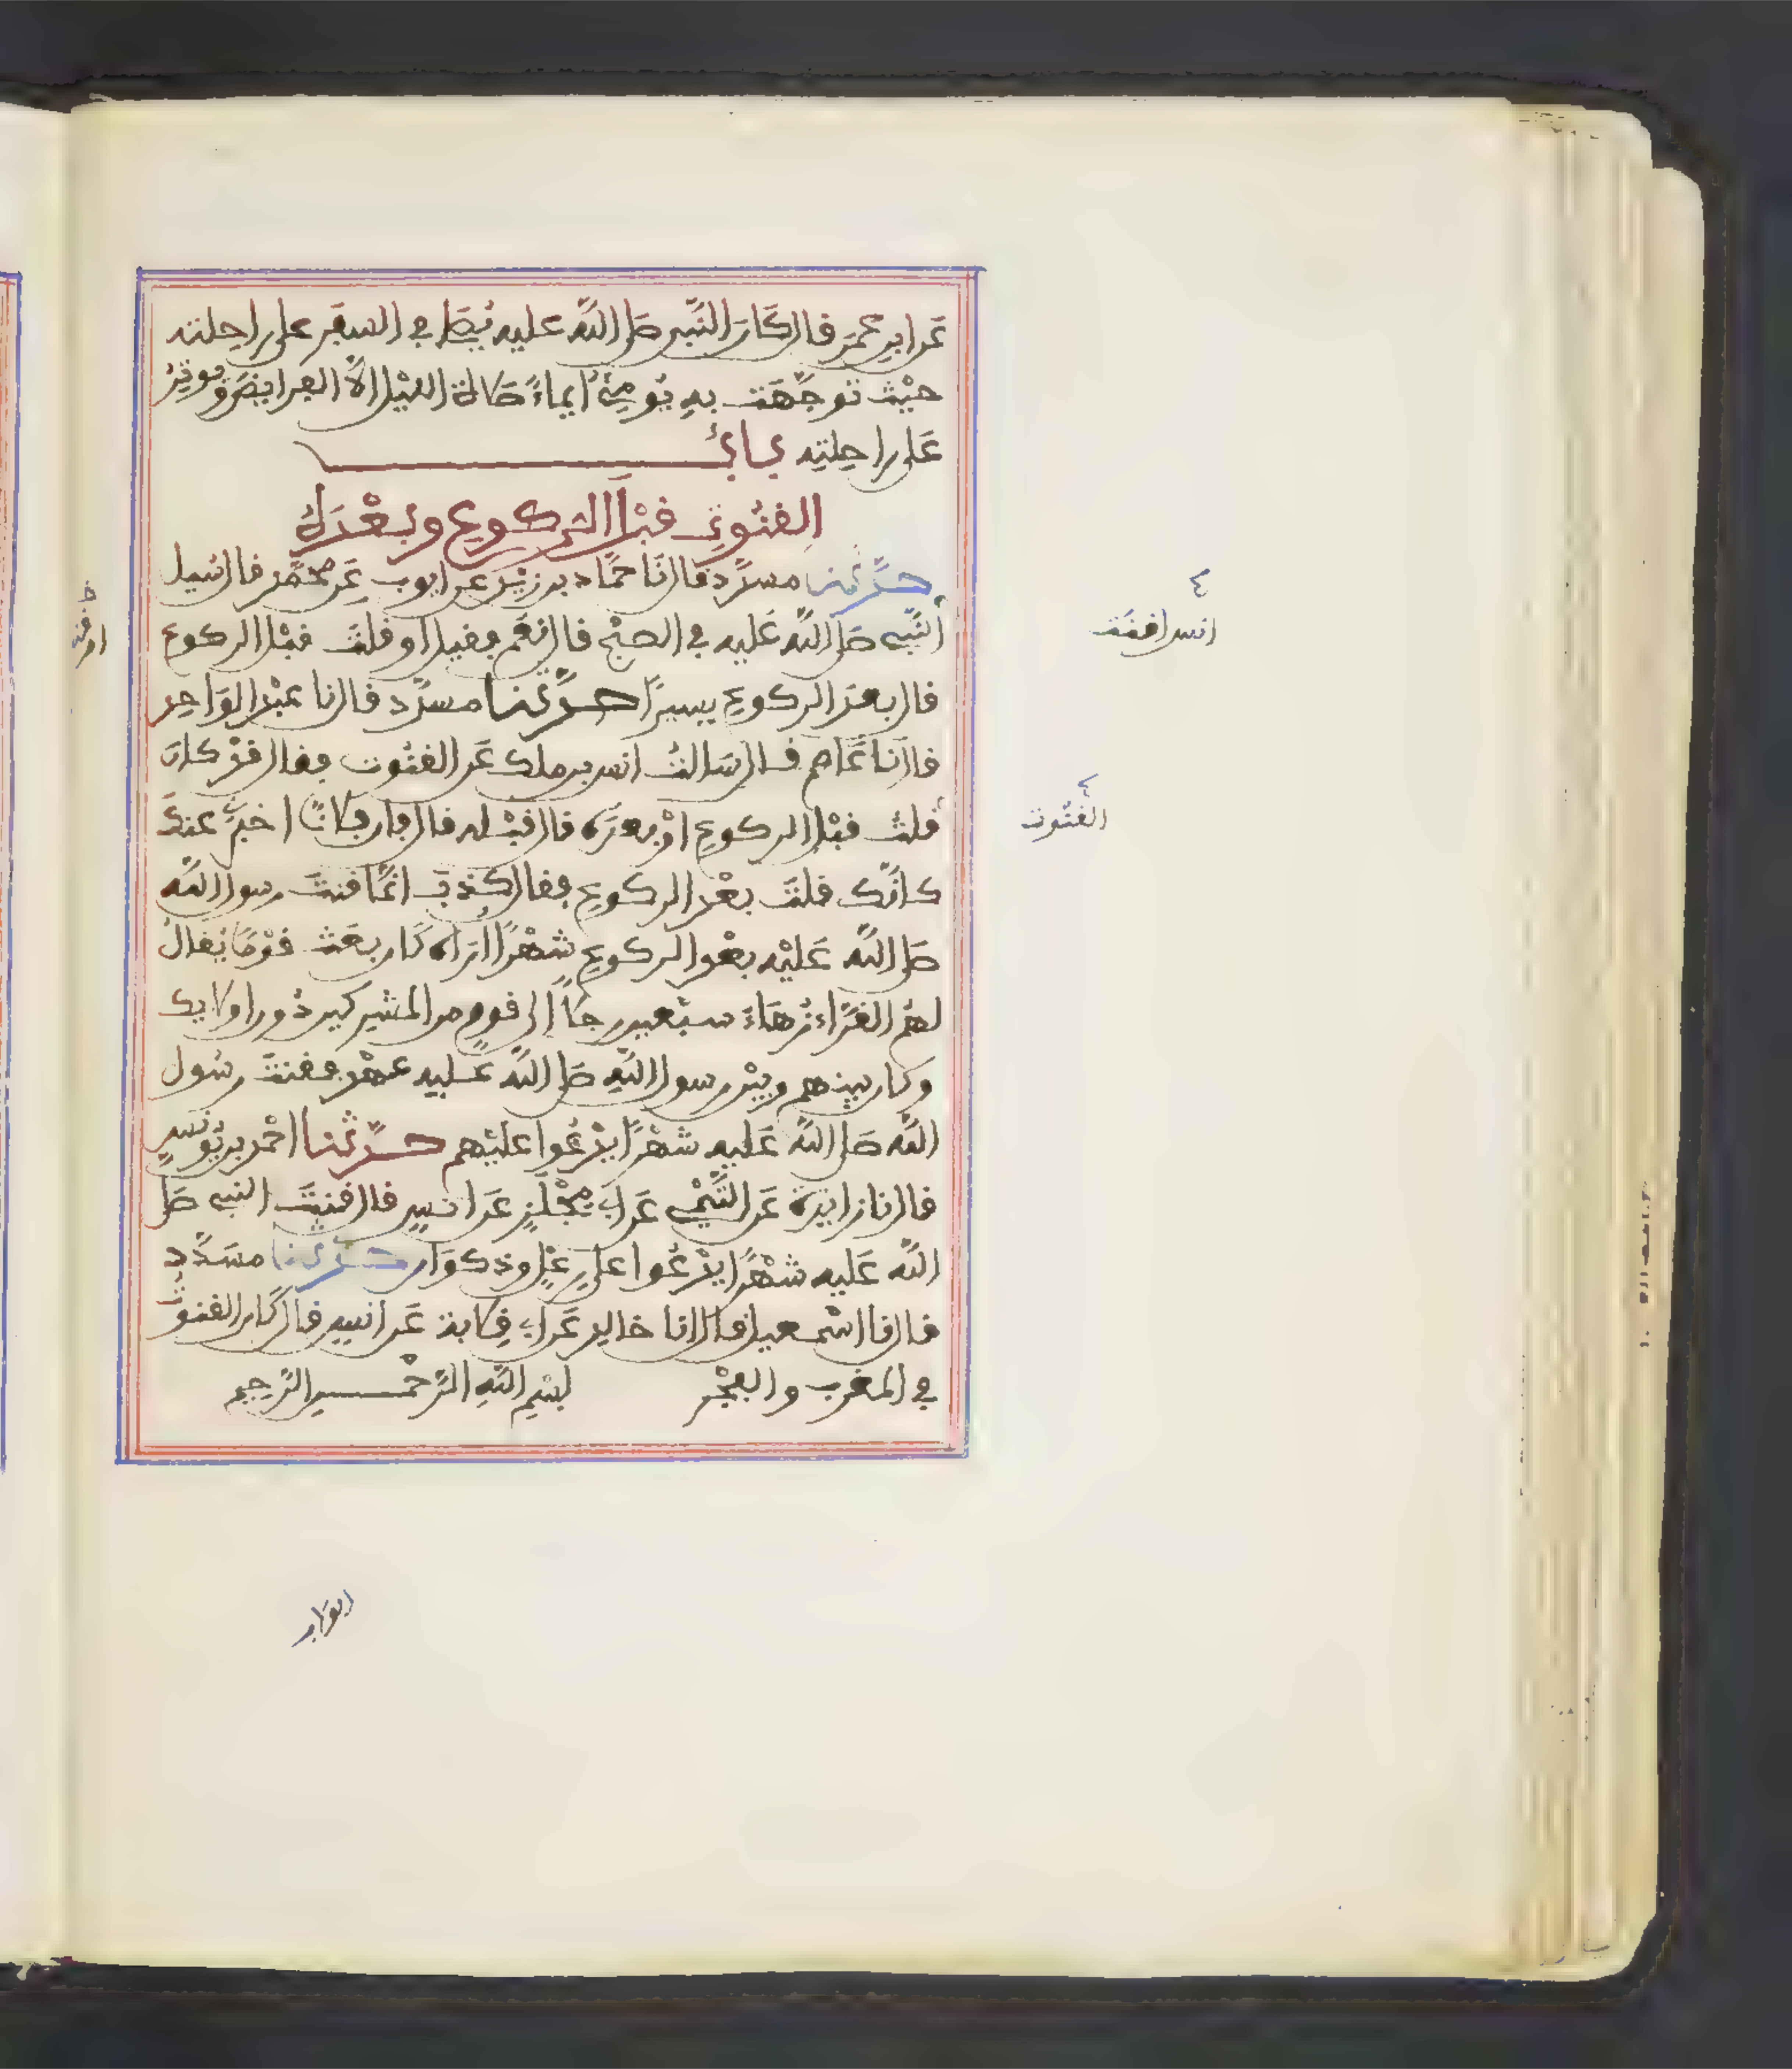 عَنِ ابنِ عُمَرَ قال كَانَ النَّبِي صَلى اللَّه عليه يُصَلى في السفَرِ على راحلته
حيْثُ توجَّهَت به يُومِئُ ايماءً صَلاة الليْل الاَّ الفرايضَ ويوتِرُ
عَلى راحِلتِه بابُ
القنُوتِ قبْلَ الركوعِ وبعْدَهُ
حدَّثنا مسدَّد قال نَا حمَّاد بن زيْد عن ايوب عَن محمَّد قال سُيل
النَّبي صَلى اللَّه عَليه في الصبْح قال نعَم فقيل اوقلتَ قبْل الركوع
قال بعدَ الركوعِ يسيرًا حدَّثنا مسدَّد قال نا عبْد الوَاحِد
قال نَا عَاصم قال سَالتُ انس بن ملك عَن القنُوت فقال قدْ كانَ
قلتُ قبْل الركوعِ اوْ بعدَه قال قبْله قال فان فلانًا اخبرَني عنكَ
كانَّك قلتَ بعْد الركوعِ فقال كذبَ انَّما قنتَ رسول اللَّه
صَلى اللَّه عَليْه بعْد الركوعِ شهْرًا ارَاه كَان بعَث قوْمًا يُقالُ
لهُم القرَّاء زُهَاءَ سبْعين رجلاً الى قومٍ من المشركين دُون اولايك
وكان بينهم وبيْن رسول اللَّهِ صَلى اللَّه عَليه عهْد فقنتَ رسُول
اللَّه صَلى اللَّه عَليه شهْرًا يدْعُوا عليْهم حدَّثنا احْمد بن يُونس
قال نا زايدَة عَن التَّيْمي عَن ابي مِجْلَزٍ عَن انسٍ قال قنتَ النبي صَلى
اللَّه عَليه شهْرًا يدْعُوا على رِعْلٍ وذكوَان حدَّثنا مسَدَّد
قال نا اسْمعيل قال انا خالد عَن ابي قِلابة عَن انسٍ قال كَان القنوتُ
في المغرب والفجْر بسْمِ اللَّهِ الرَّحْمن الرَّحِيم
انس اقنَتَ
القنُوت
ابوَاب